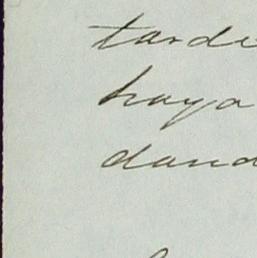 tarde
haya
dand